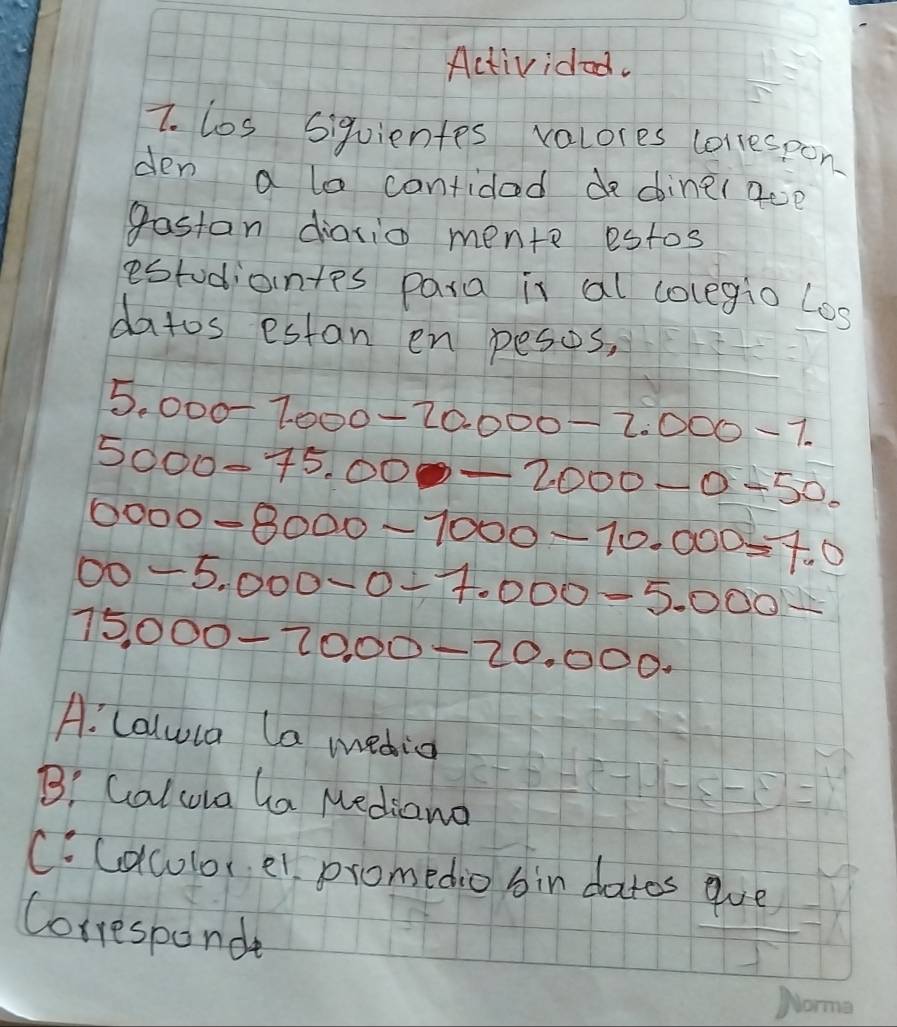 Actividad.
1. Los siguientes valores correspon
den a la cantidad de diner que
gastan diario mente estos
estudiantes para ir al colegio Los
datos estan en pesos,
5.000 - 1.000 - 20.000 - 2.000 - 1.
5000 - 75.000 - 2000 - 0 - 50.
0000 - 8000 - 1000 - 10.000 = 7.0
00 - 5.000 - 0 - 7.000 - 5.000 -
15,000 - 20.00 - 20.000.
A: Calcula la media
B: Calcula La Mediana
C: Calculor el promedio sin datos que
Corresponde
Norma